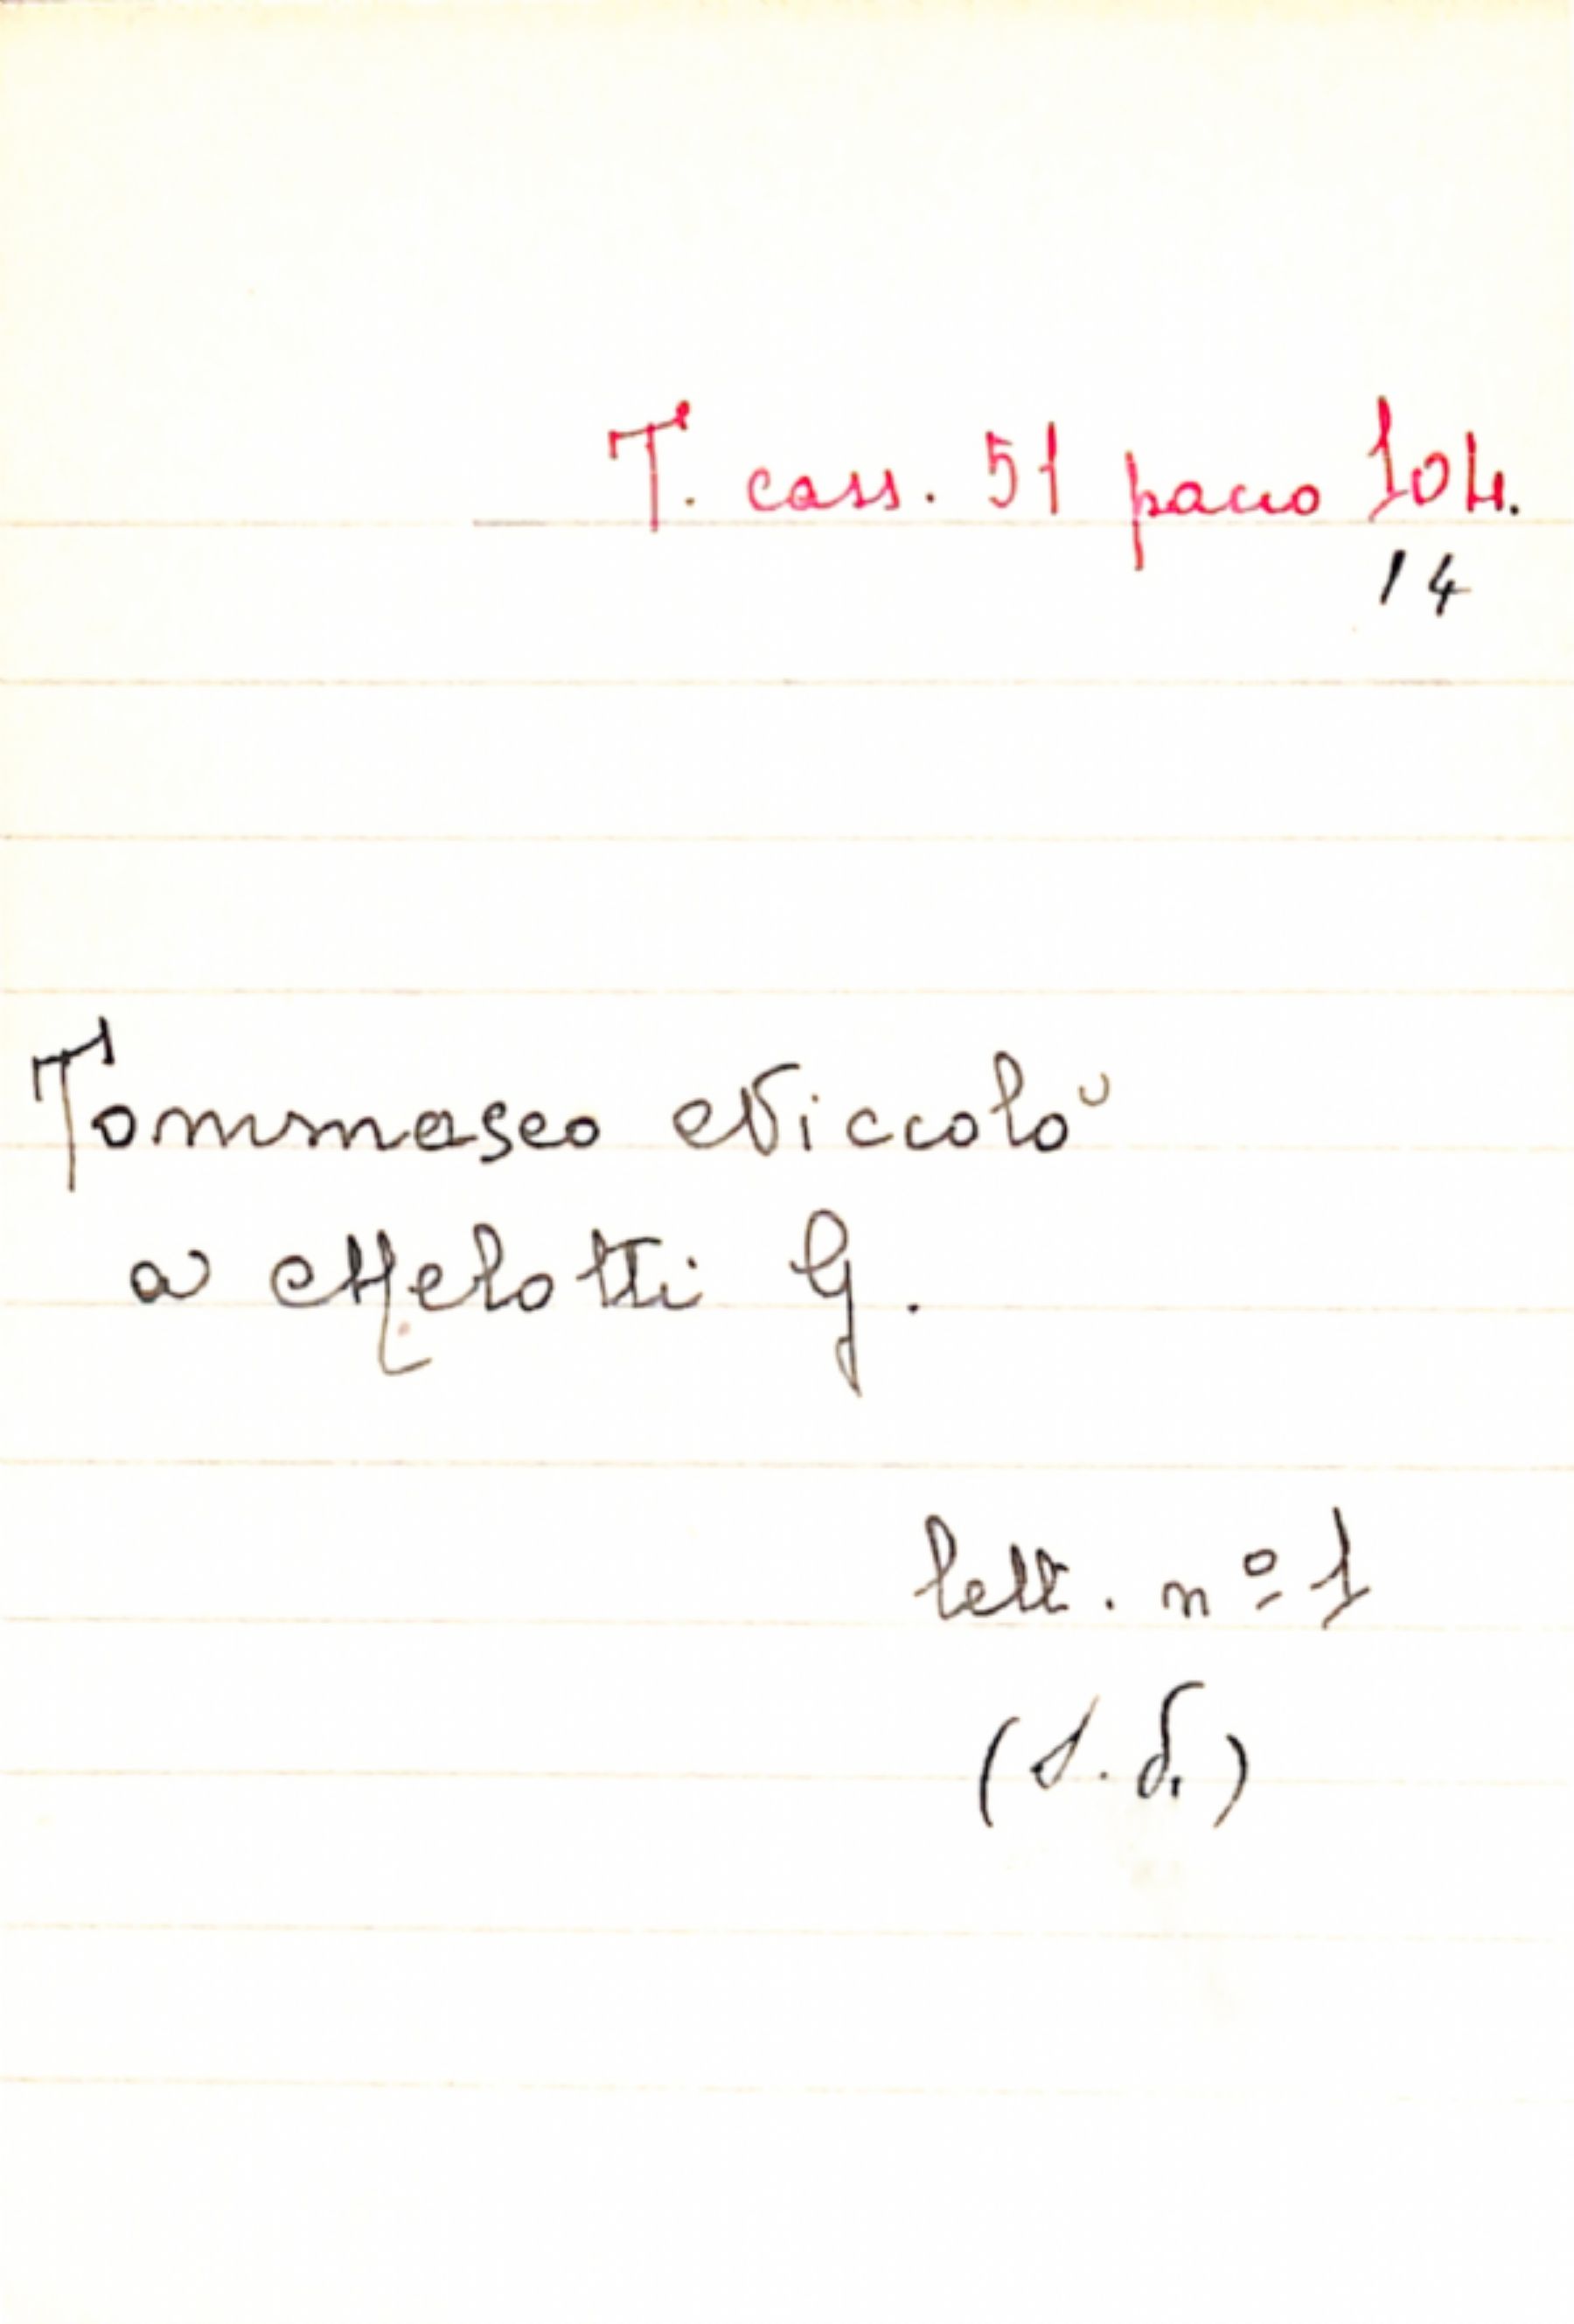 T. cass. 51 pacco 104.
14
Tommaseo Niccolò
a Melotti G.
lett. nº 1
(s.d.)